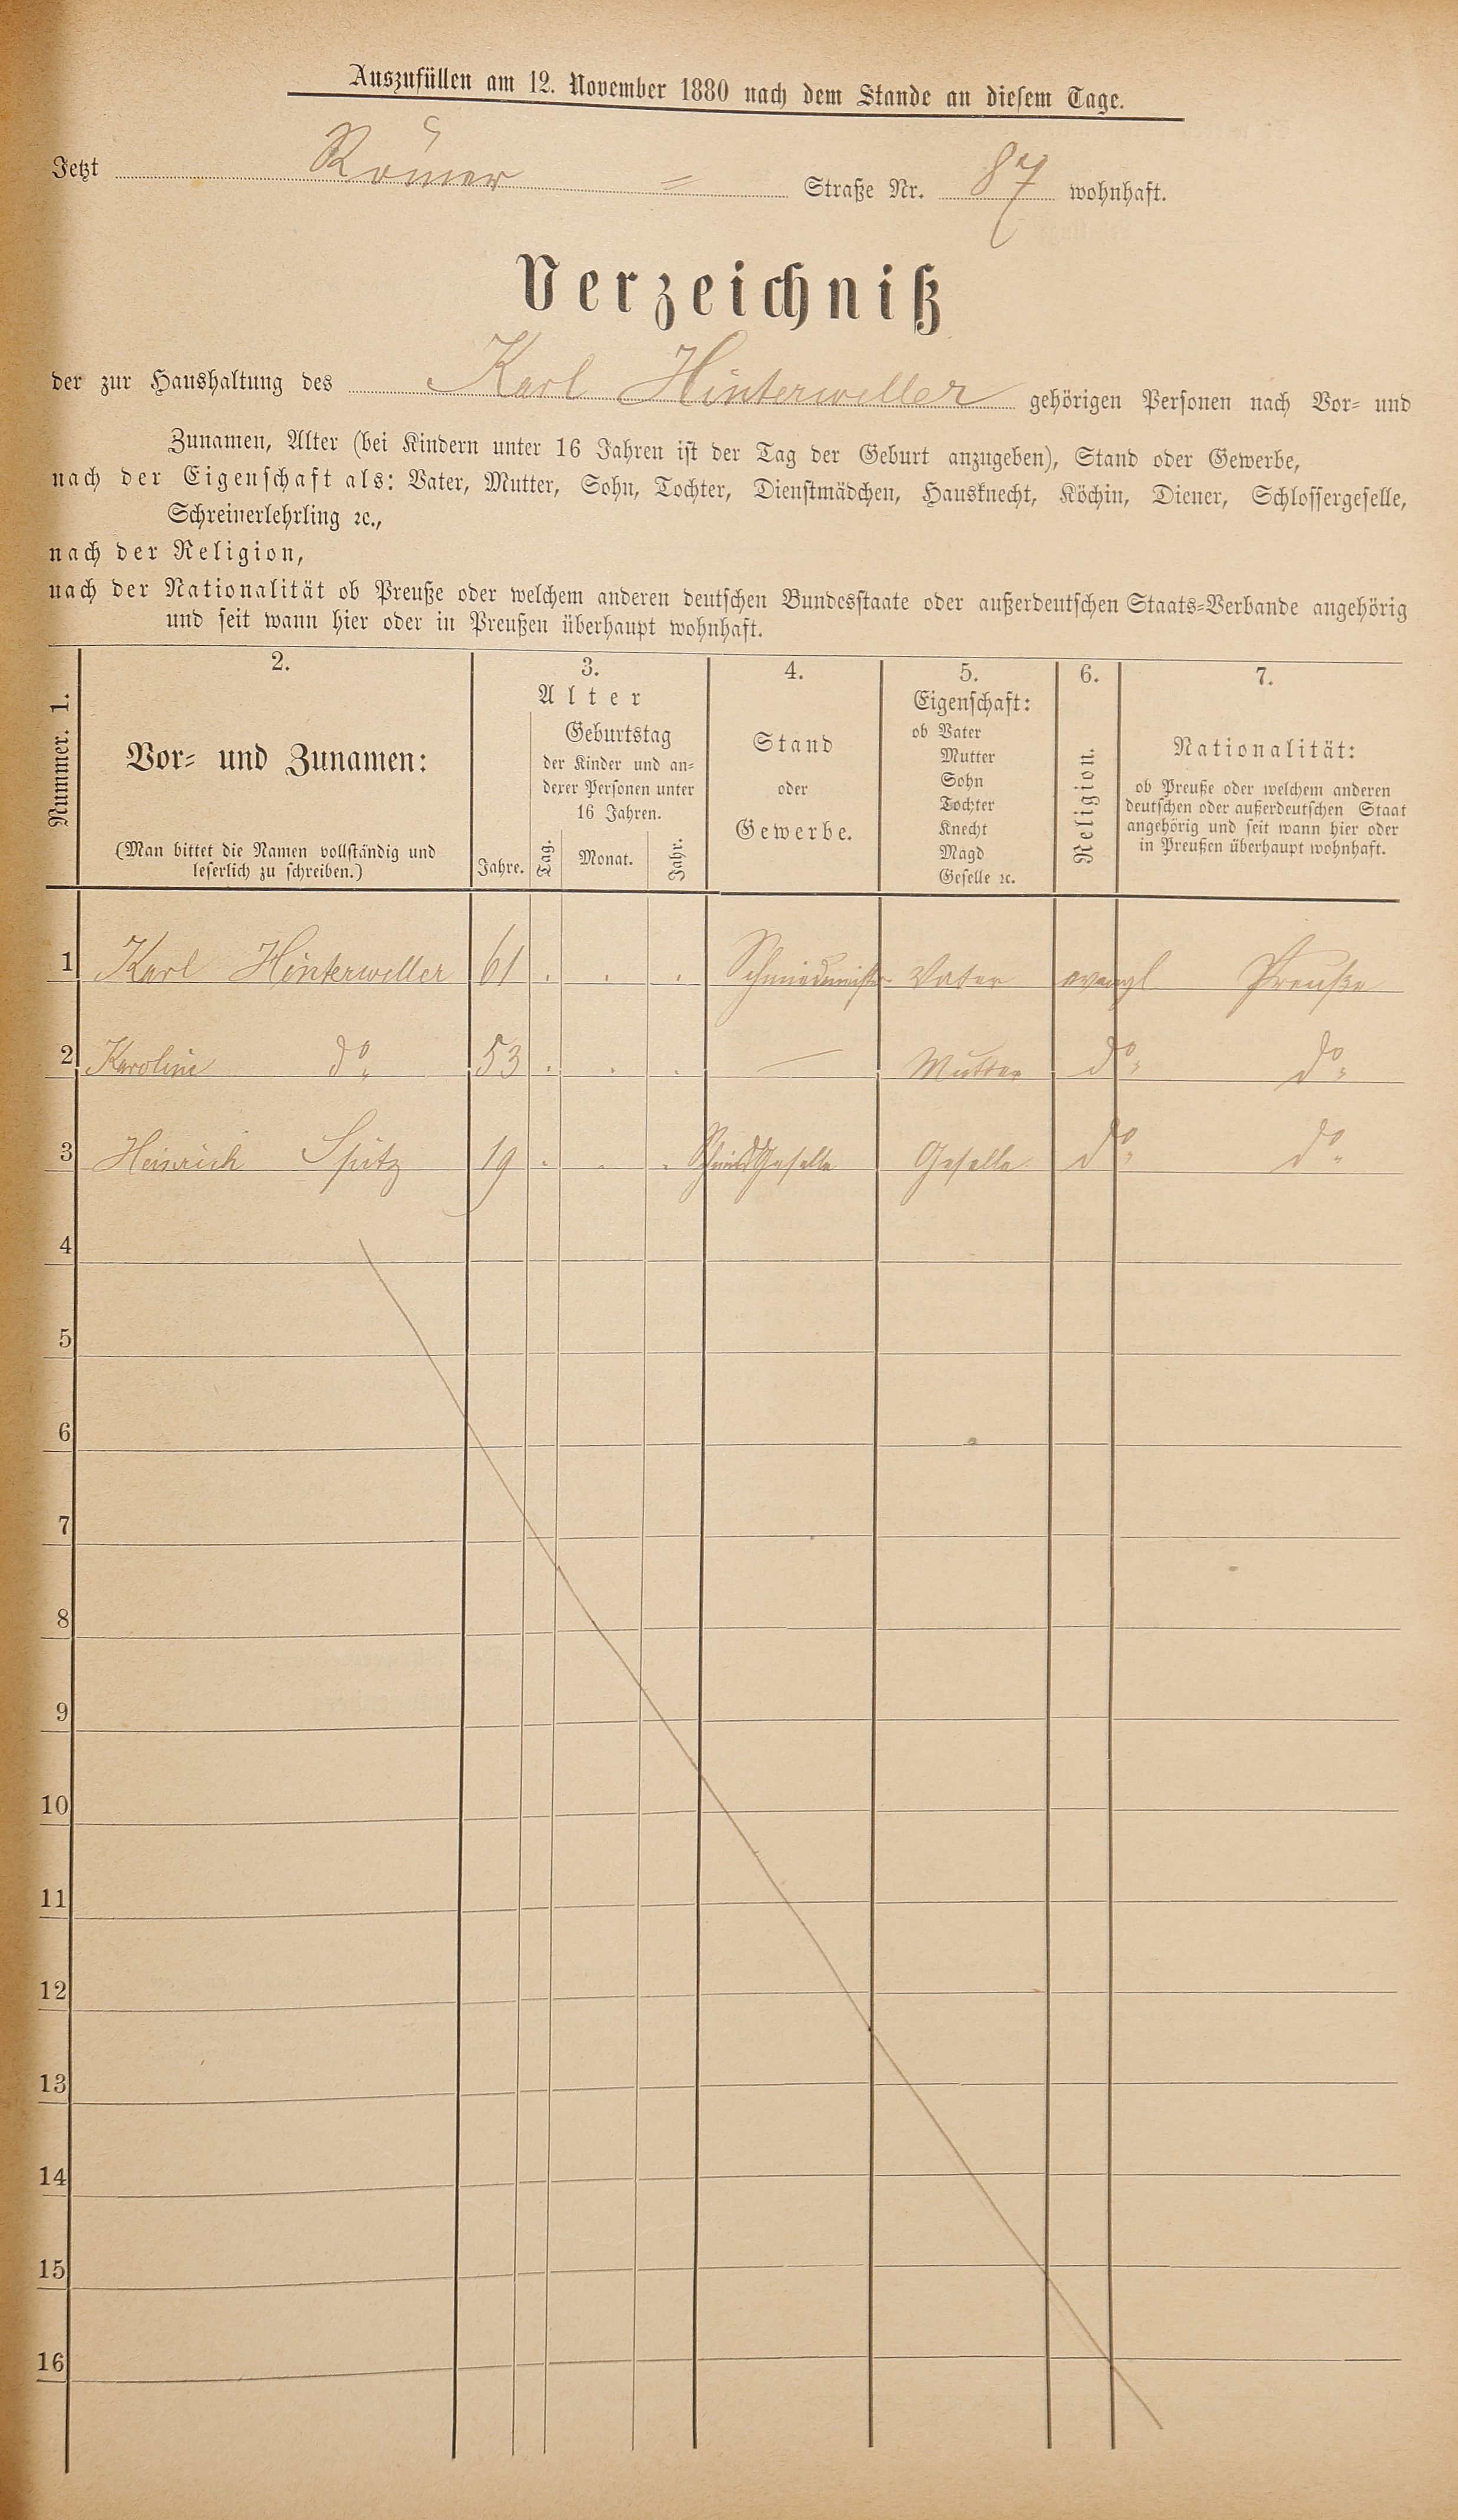 Auszufüllen am 12. November 1880 nach dem Stande an diesem Tage.
Jetzt Römer = Straße Nr. 87 wohnhaft.
Verzeichniß
der zur Haushaltung des Karl Hinterweller gehörigen Personen nach Vor- und
Zunamen, Alter (bei Kindern unter 16 Jahren ist der Tag der Geburt anzugeben), Stand oder Gewerbe,
nach der Eigenschaft als: Vater, Mutter, Sohn, Tochter, Dienstmädchen, Hausknecht, Köchin, Diener, Schlossergeselle,
Schreinerlehrling ꝛc.,
nach der Religion,
nach der Nationalität ob Preuße oder welchem anderen deutschen Bundesstaate oder außerdeutschen Staats-Verbande angehörig
und seit wann hier oder in Preußen überhaupt wohnhaft.
Nummer. 1.
2.
Vor- und Zunamen:
(Man bittet die Namen vollständig und
leserlich zu schreiben.)
3.
Alter
Jahre.
Geburtstag
der Kinder und an-
derer Personen unter
16 Jahren.
Tag. Monat. Jahr.
4.
Stand
oder
Gewerbe.
5.
Eigenschaft:
ob Vater
Mutter
Sohn
Tochter
Knecht
Magd
Geselle ꝛc.
6.
Religion.
7.
Nationalität:
ob Preuße oder welchem anderen
deutschen oder außerdeutschen Staat
angehörig und seit wann hier oder
in Preußen überhaupt wohnhaft.
1 Karl Hinterweller 61 . . . Schmiedmeister Vater evangl Preuße
2 Karoline do 53 . . . — Mutter do do
3 Heinrich Spitz 19 . . . Schmied Geselle Geselle do do
4
5
6
7
8
9
10
11
12
13
14
15
16